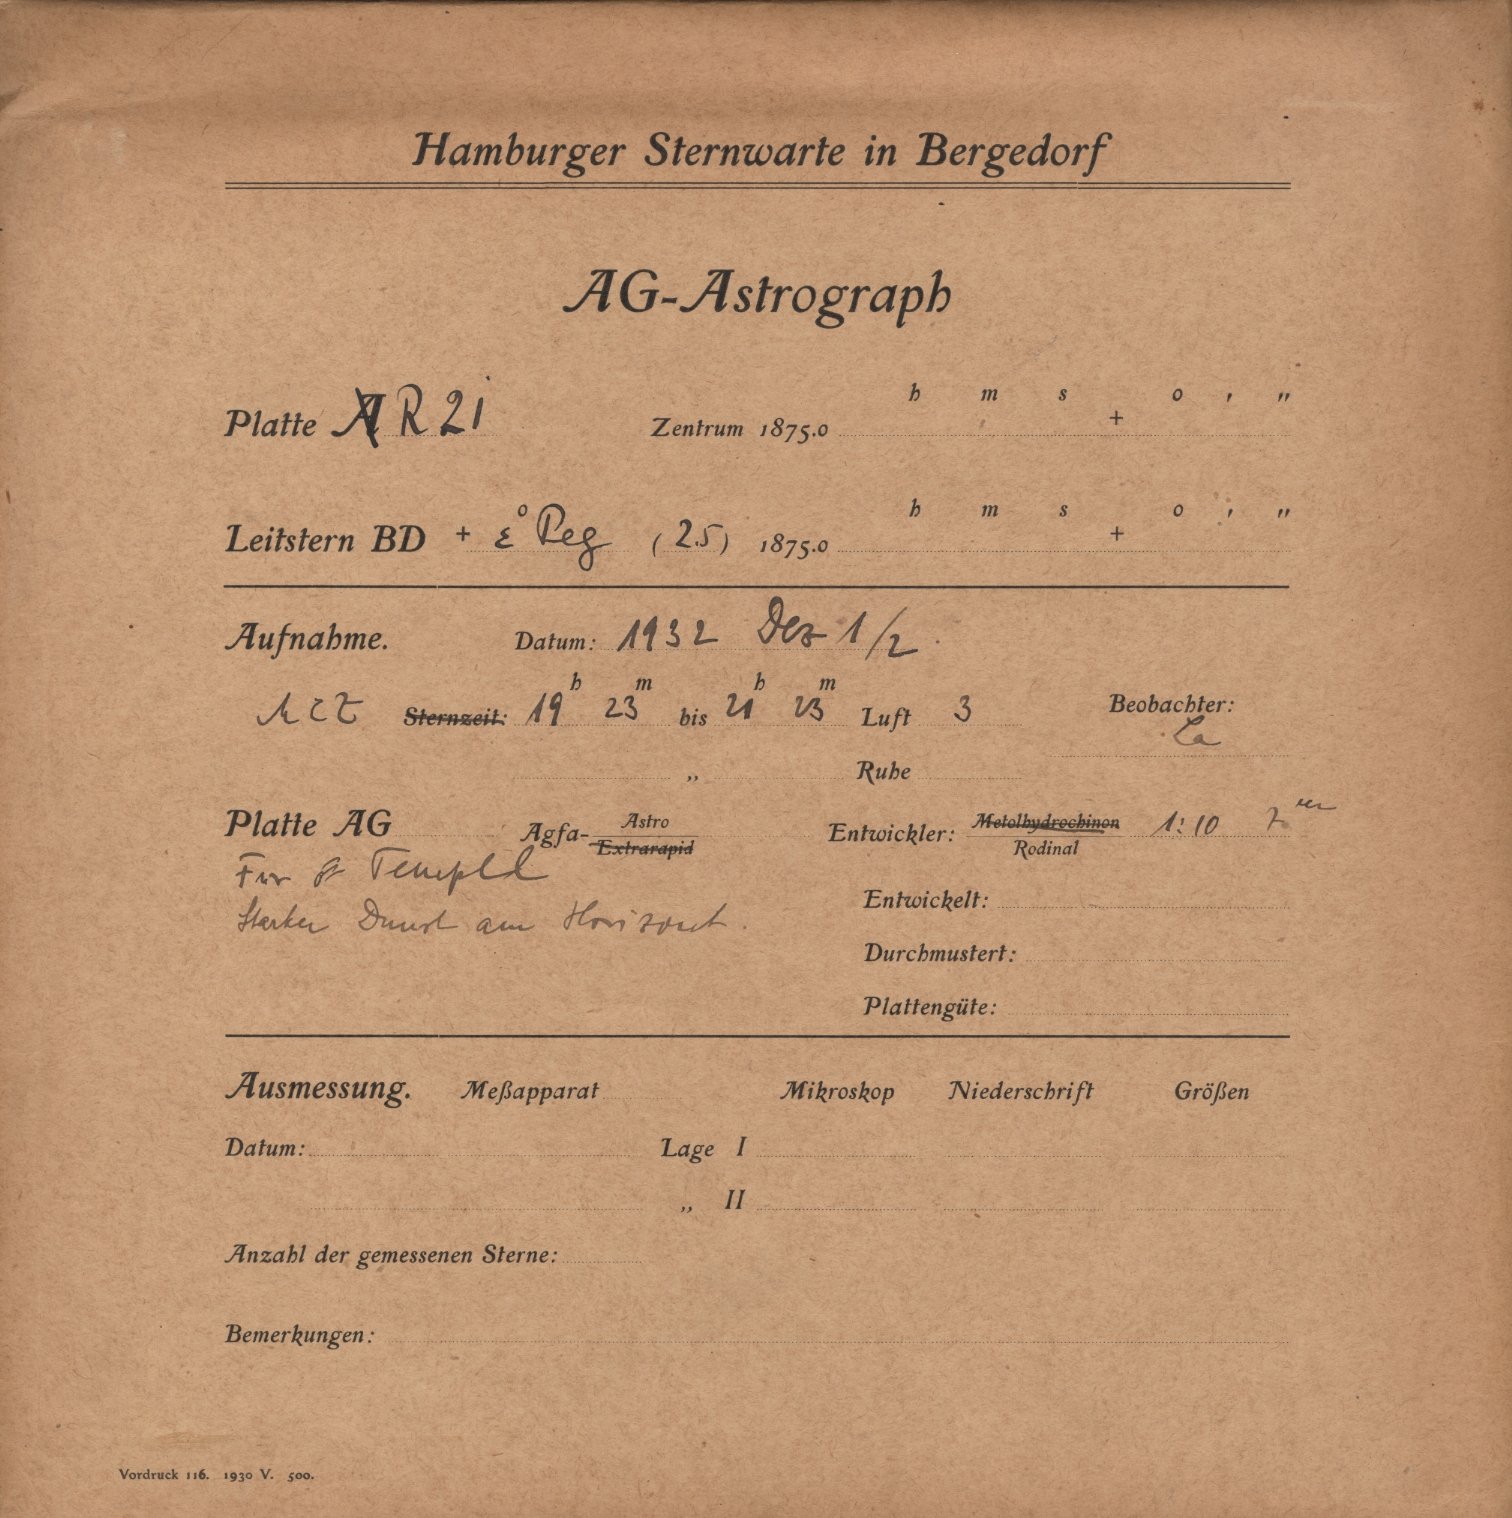 Hamburger Sternwarte in Bergedorf
AG-Astrograph
h m s o ' "
Platte AR 21 Zentrum 1875.0 +
h m s o ' "
Leitstern BD + ε Peg (2.5) 1875.0 +
Aufnahme. Datum: 1932 Dez 1/2
MEZ Sternzeit: 19 h 23 m bis 21 h 23 m Luft 3 Beobachter:
La
„ Ruhe
Platte AG Agfa- Astro Extrarapid Entwickler: Metolhydrochinon Rodinal 1:10 7
Für
Starker Dunst am Horizont.
Entwickelt:
Durchmustert:
Plattengüte:
Ausmessung. Meßapparat Mikroskop Niederschrift Größen
Datum: Lage I
„ II
Anzahl der gemessenen Sterne:
Bemerkungen:
Vordruck 116. 1930 V. 500.